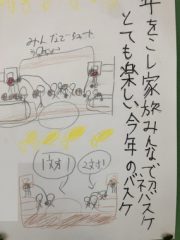 年をこし家族みんなで初バスケ
とても楽しい今年のバスケ
みんなでシュート
1対1
2対1